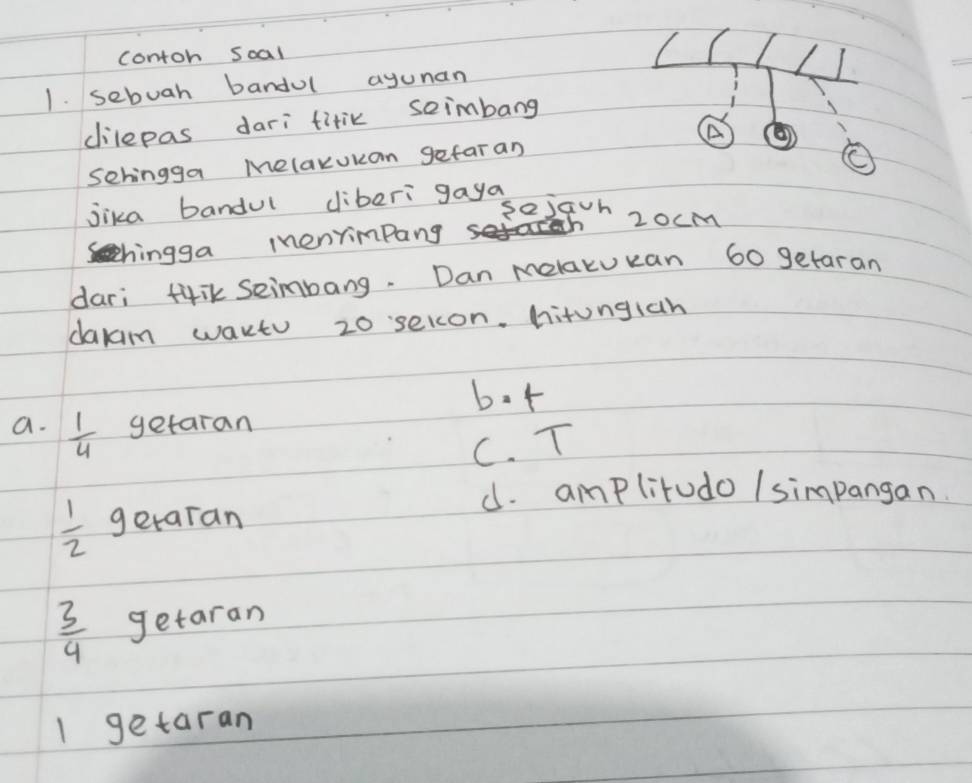 contoh soal
1. sebuah bandul ayunan
dilepas dari titik seimbang
sehingga melakukan getaran
jika bandul diberi gaya
sehingga menyimpang sejauh 20cm
dari titik seimbang. Dan melakukan 60 getaran
dalam waktu 20 sekon. hitunglah
A
B
C
a. 1/4 getaran
1/2 getaran
3/4 getaran
1 getaran
b. f
c. T
d. amplitudo / simpangan.